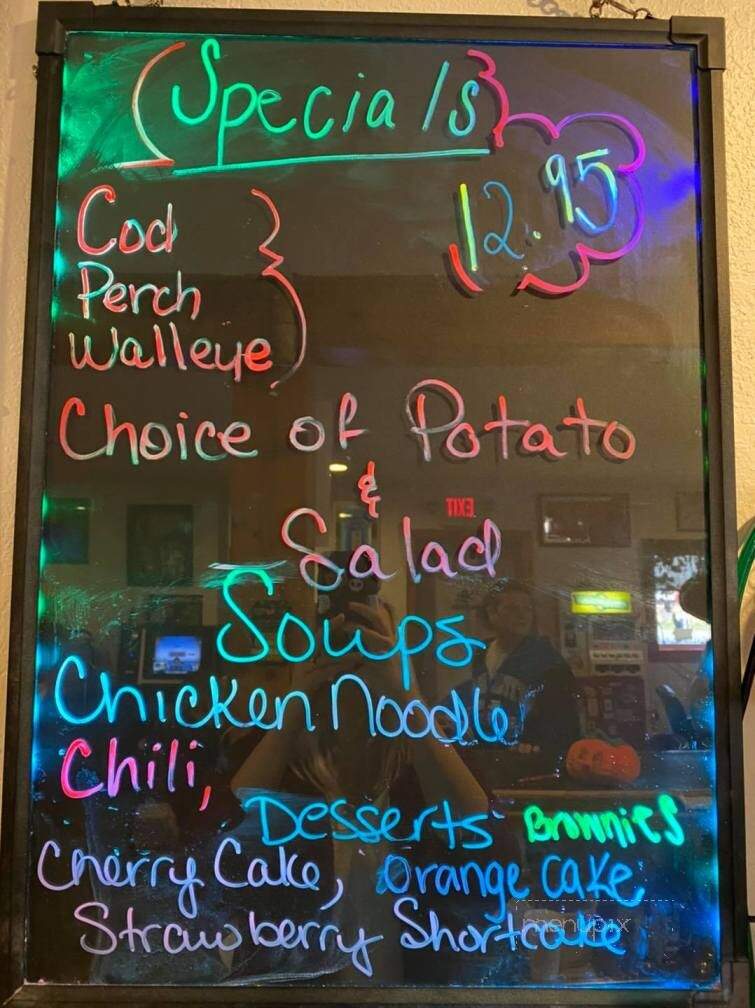 Specials
12.95
Cod
Perch
Walleye
Choice of Potato
&
Salad
EXIT
Soups
Chicken Noodle
Chili,
Desserts Brownies
Cherry Cake, Orange Cake
Strawberry Shortcake
menupix